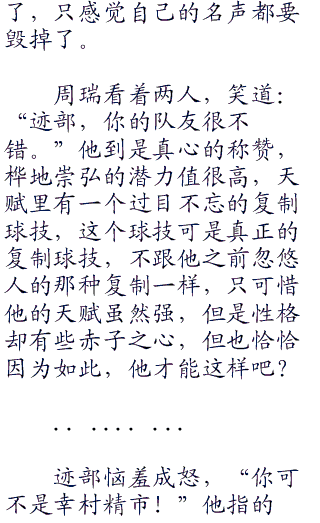 了，只感觉自己的名声都要
毁掉了。
周瑞看着两人，笑道：
“迹部，你的队友很不
错。”他到是真心的称赞，
桦地崇弘的潜力值很高，天
赋里有一个过目不忘的复制
球技，这个球技可是真正的
复制球技，不跟他之前忽悠
人的那种复制一样，只可惜
他的天赋虽然强，但是性格
却有些赤子之心，但也恰恰
因为如此，他才能这样吧？
．． ．．．． ．．．
迹部恼羞成怒，“你可
不是幸村精市！”他指的